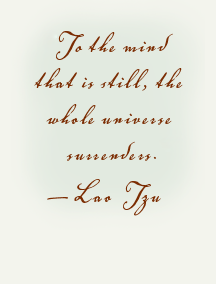 To the mind
that is still, the
whole universe
surrenders.
— Lao Tzu